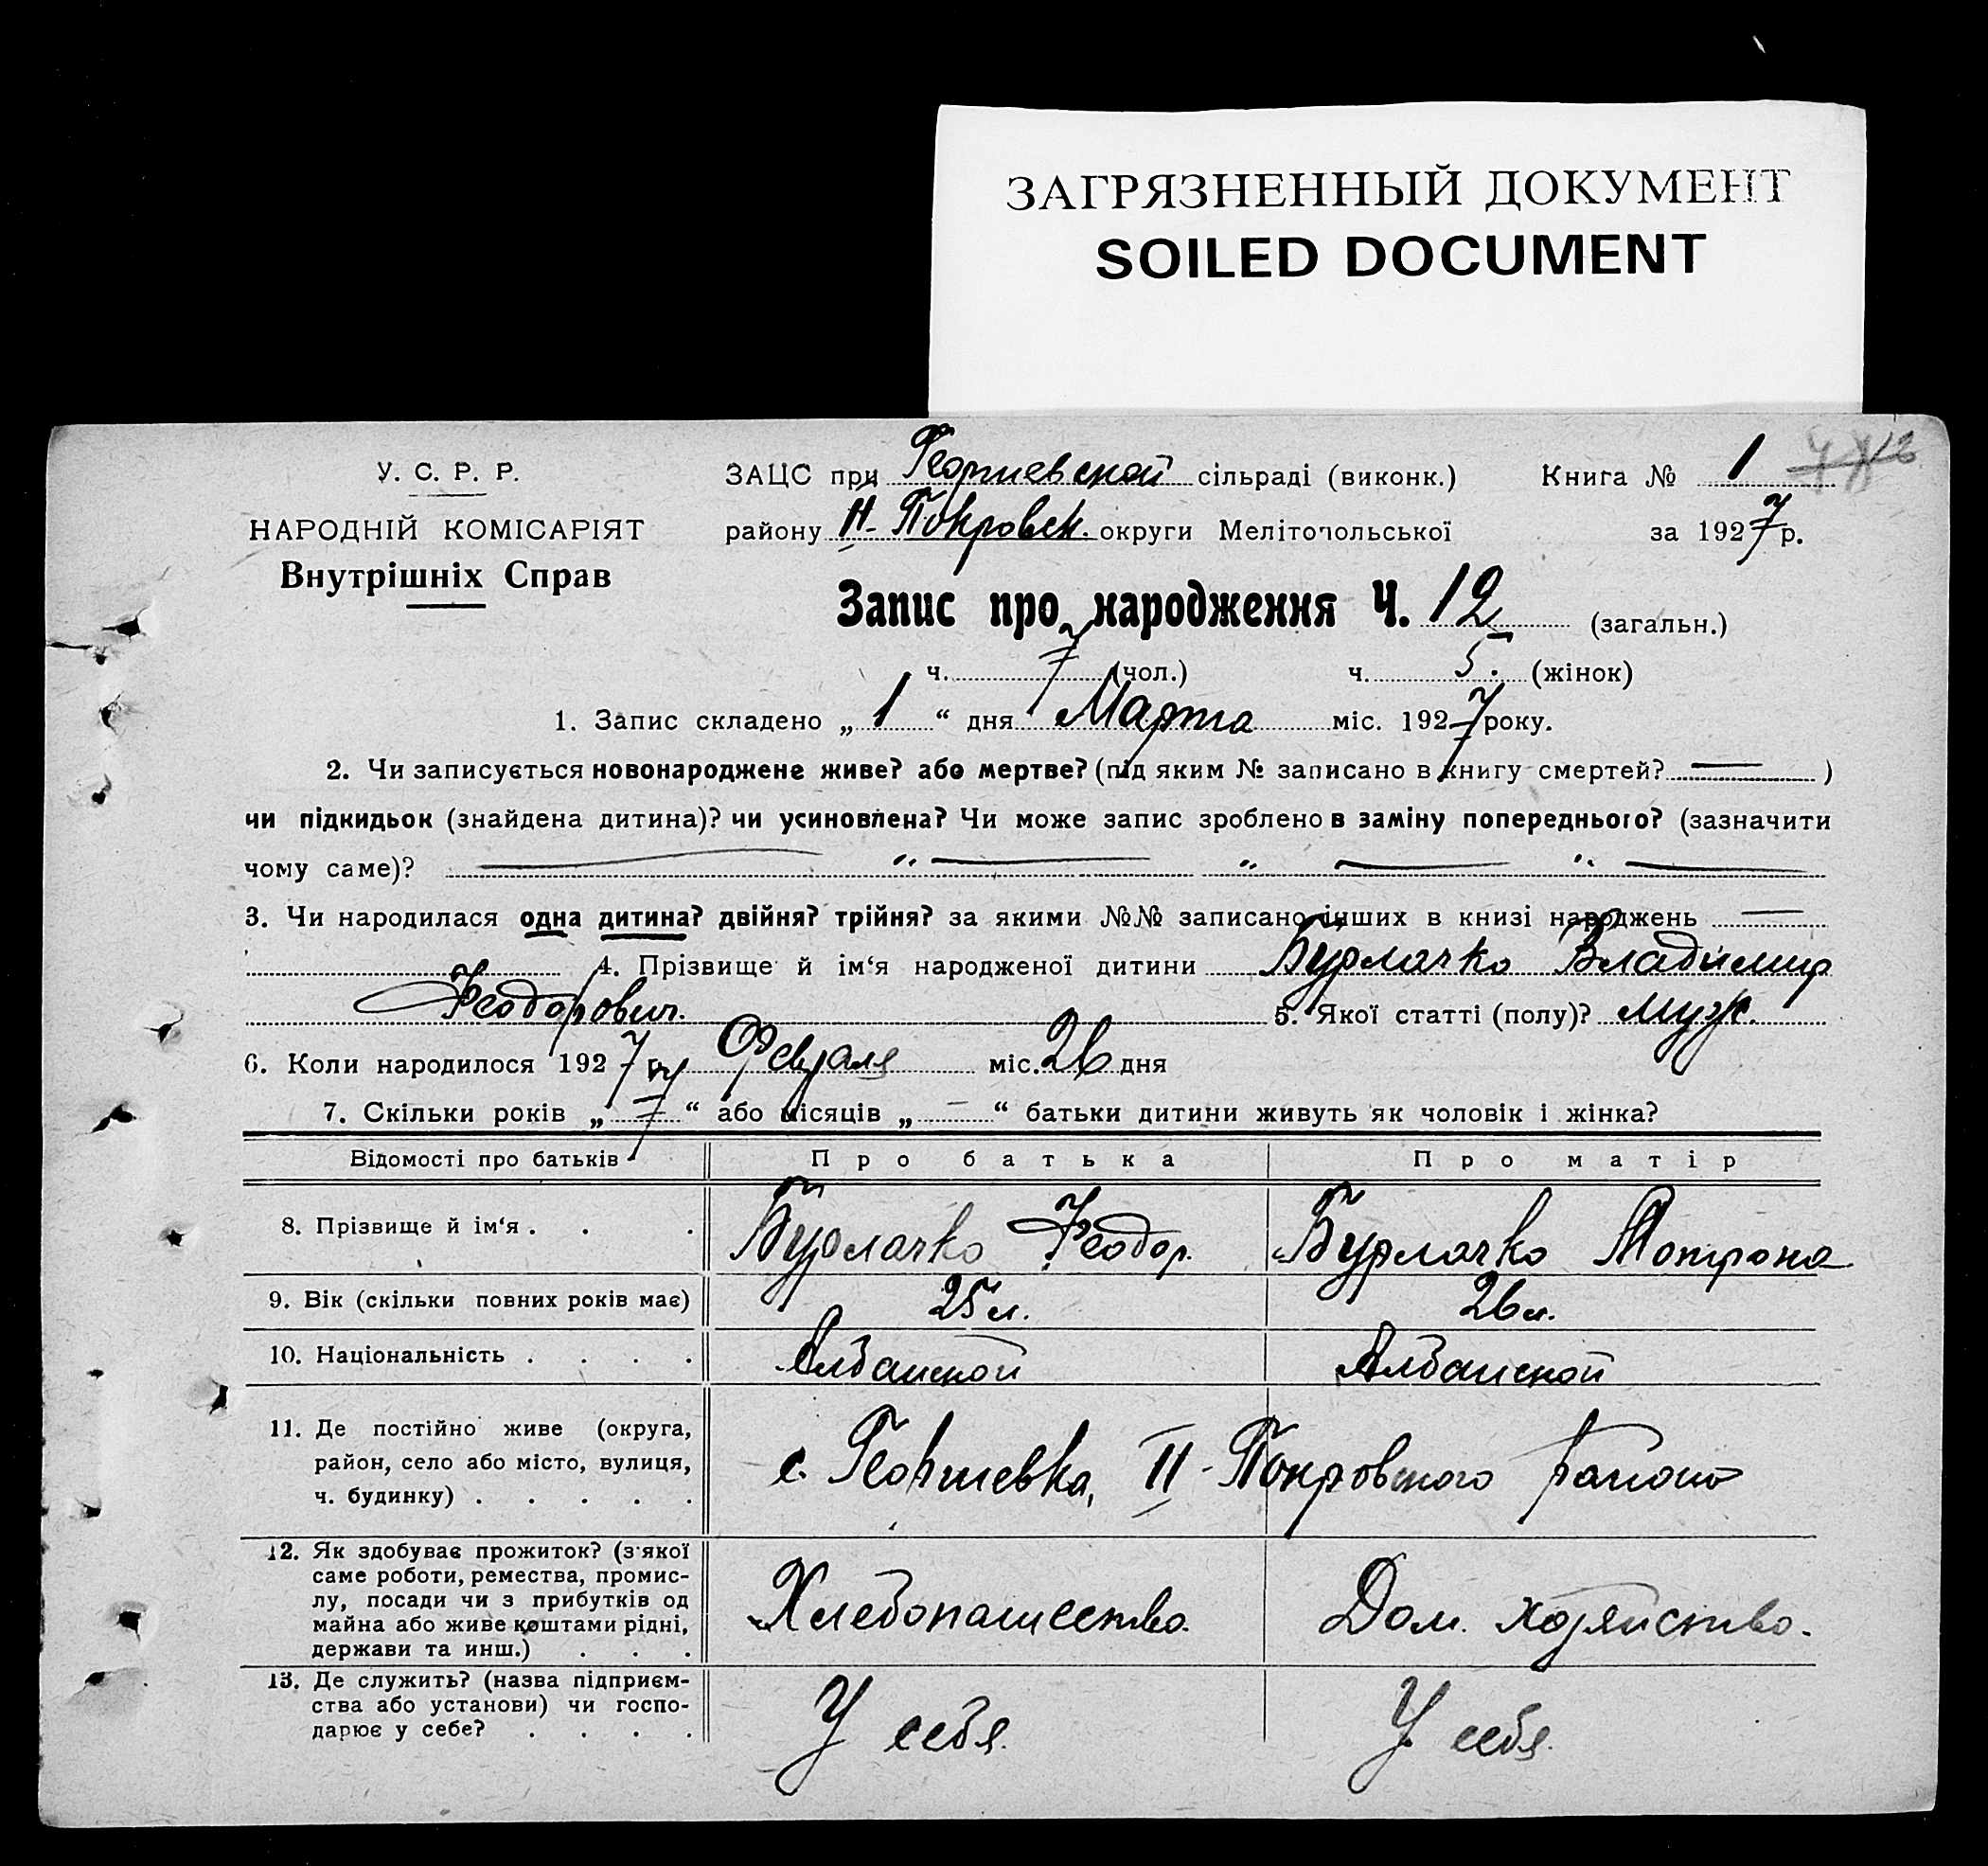 ЗАГРЯЗНЕННЫЙ ДОКУМЕНТ
SOILED DOCUMENT
У. С. Р. Р.
НАРОДНІЙ КОМІСАРІЯТ
Внутрішніх Справ
ЗАЦС при Георгиевской сільраді (виконк.) Книга № 1
району II-Покровск. округи Мелітопольської за 1927 р.
Запис про народження Ч. 12 (загальн.)
ч. 7 (чол.) ч. 5. (жінок)
1. Запис складено „ 1 “ дня Марта міс. 1927 року.
2. Чи записується новонароджене живе? або мертве? (під яким № записано в книгу смертей? — )
чи підкидьок (знайдена дитина)? чи усиновлена? Чи може запис зроблено в заміну попереднього? (зазначити
чому саме)? — „ — „ — „ —
3. Чи народилася одна дитина? двійня? трійня? за якими №№ записано інших в книзі народжень —
4. Прізвище й ім‘я народженої дитини Бурлачко Владимир
Феодорович. 5. Якої статті (полу)? муж.
6. Коли народилося 1927 г. Февраля міс. 26 дня
7. Скільки років „ 7 “ або місяців „ — “ батьки дитини живуть як чоловік і жінка?
Відомості про батьків Про батька Про матір
8. Прізвище й ім‘я . . . Бурлачко Феодор. Бурлачко Мотрона
9. Вік (скільки повних років має) 25 л. 26 л.
10. Національність . . . . Албанской Албанской
11. Де постійно живе (округа,
район, село або місто, вулиця,
ч. будинку) . . . . .
с. Георгиевка, II-Покровского района
12. Як здобуває прожиток? (з якої
саме роботи, ремества, промис-
лу, посади чи з прибутків од
майна або живе коштами рідні,
держави та инш.) . . .
Хлебопашество. Дом. хозяйство.
13. Де служить? (назва підприєм-
ства або установи) чи госпо-
дарює у себе? . . . .
У себя. У себя.